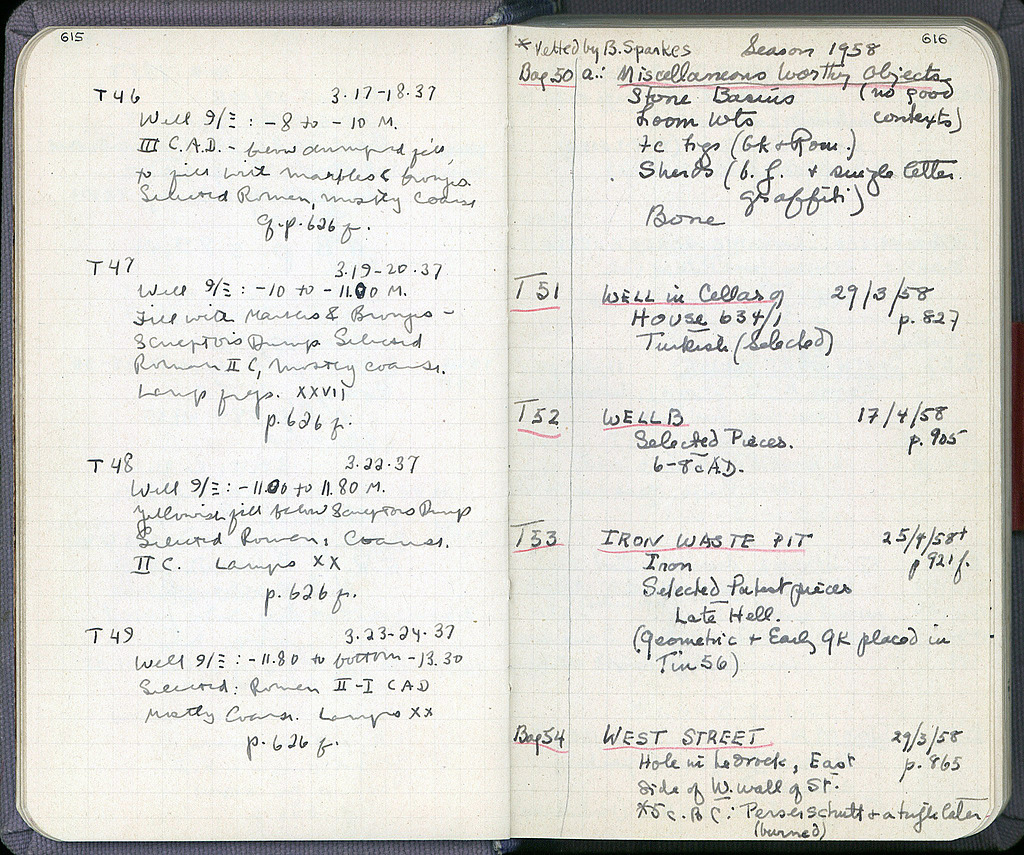 615
T 46 3.17-18.37
Well 9/Ξ : -8 to -10 M.
III C. A.D. - below dumped fill,
to fill with marbles & bronzes.
Selected Roman, mostly Coarse
q.p. 626 f.
T 47 3.19-20.37
Well 9/Ξ : -10 to -11.00 M.
Fill with Marbles & Bronzes -
Sculptors Dump Selected
Roman II C, mostly coarse.
Lamp frgs. XXVII
p. 626 f.
T 48 3.22.37
Well 9/Ξ : -11.00 to 11.80 M.
Yellowish fill below Sculptors Dump
Selected Roman, Coarse.
II C. Lamps XX
p. 626 f.
T 49 3.23-24.37
Well 9/Ξ : -11.80 to bottom -13.30
Selected: Roman II-I C AD
Mostly Coarse. Lamps XX
p. 626 f.
616
* Vetted by B. Sparkes Season 1958
Bag 50 a.: Miscellaneous Worthy Objects
Stone Basins (no good
Loom Wts contexts)
tc figs (Gk + Rom.)
Sherds (b.f. + single letter
graffiti)
Bone
T 51 WELL in Cellar of 29/3/58
House 634/1 p. 827
Turkish (Selected)
T 52 WELL B 17/4/58
Selected Pieces. p. 905
6-8 c A.D.
T 53 IRON WASTE PIT 25/4/58+
Iron p 921 f.
Selected Patent pieces
Late Hell.
(Geometric + Early Gk placed in
Tin 56)
Bag 54 WEST STREET 29/3/58
Hole in bedrock, East p. 865
side of W. wall of St.
*5 c. B C : Perserschutt + a trifle later
(burned)